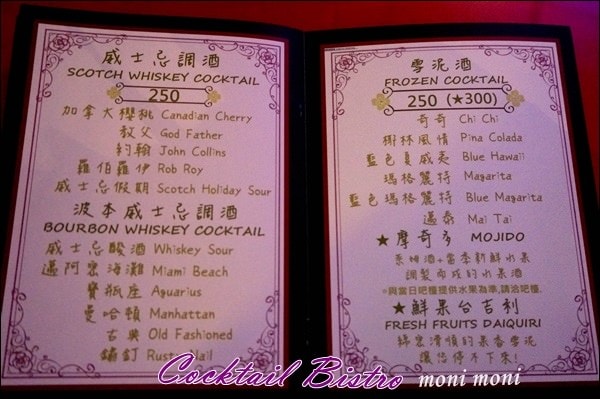 威士忌調酒
SCOTCH WHISKEY COCKTAIL
250
加拿大櫻桃 Canadian Cherry
教父 God Father
約翰 John Collins
羅伯羅伊 Rob Roy
威士忌假期 Scotch Holiday Sour
波本威士忌調酒
BOURBON WHISKEY COCKTAIL
威士忌酸酒 Whiskey Sour
邁阿密海灘 Miami Beach
寶瓶座 Aguarius
曼哈頓 Manhattan
古典 Old Fashioned
鏽釘 Rust
雪泥酒
FROZEN COCKTAIL
250 (★300)
奇奇 Chi Chi
椰林風情 Pina Colada
藍色夏威夷 Blue Hawaii
瑪格麗特 Magarita
藍色瑪格麗特 Blue Magarita
邁泰 Mai Tai
★摩奇多 MOJIDO
蘭姆酒+當季新鮮水果
調製而成的水果酒
※與當日吧檯提供水果為準,請洽吧檯.
★鮮果台吉利
FRESH FRUITS DAIQUIRI
綿密滑順的果香雪泥
讓你停不下來!
Cocktail Bistro moni moni